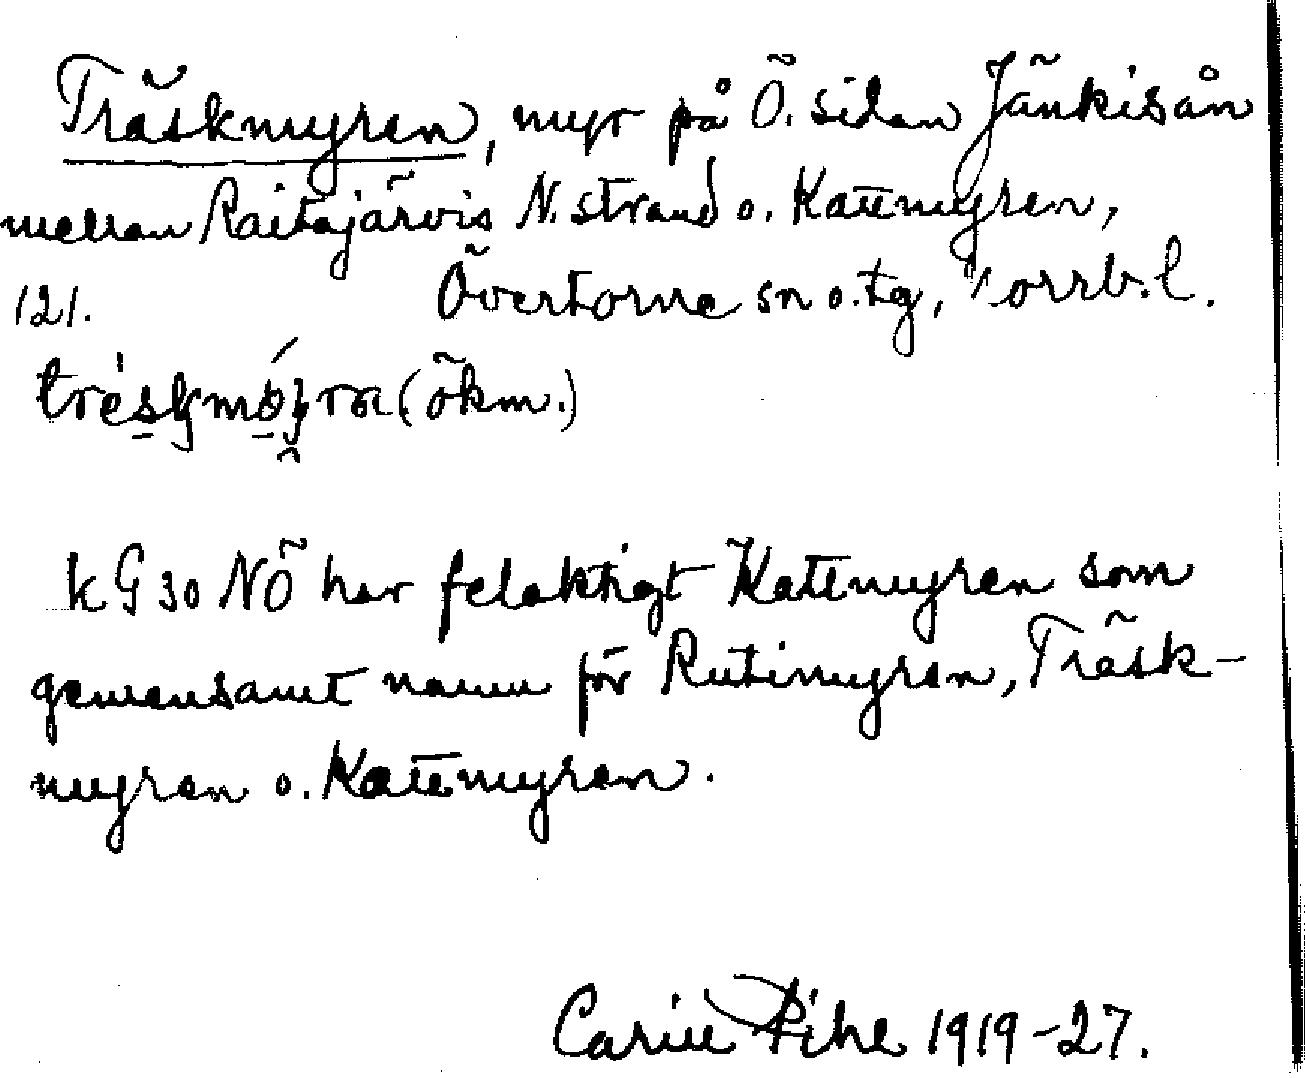 Träskmyren, myr på Ö. sidan Jänkisån
mellan Raitajärvis N. strand o. Kattmyren,
121. Övertorne sn o. tg, Norrb. l.
(ökm.)
k G 30 NÖ har felaktigt Kattmyren som
gemensamt namn för Rutimyren, Träsk-
myren o. Kattmyren.
Carin Pihl 1919-27.